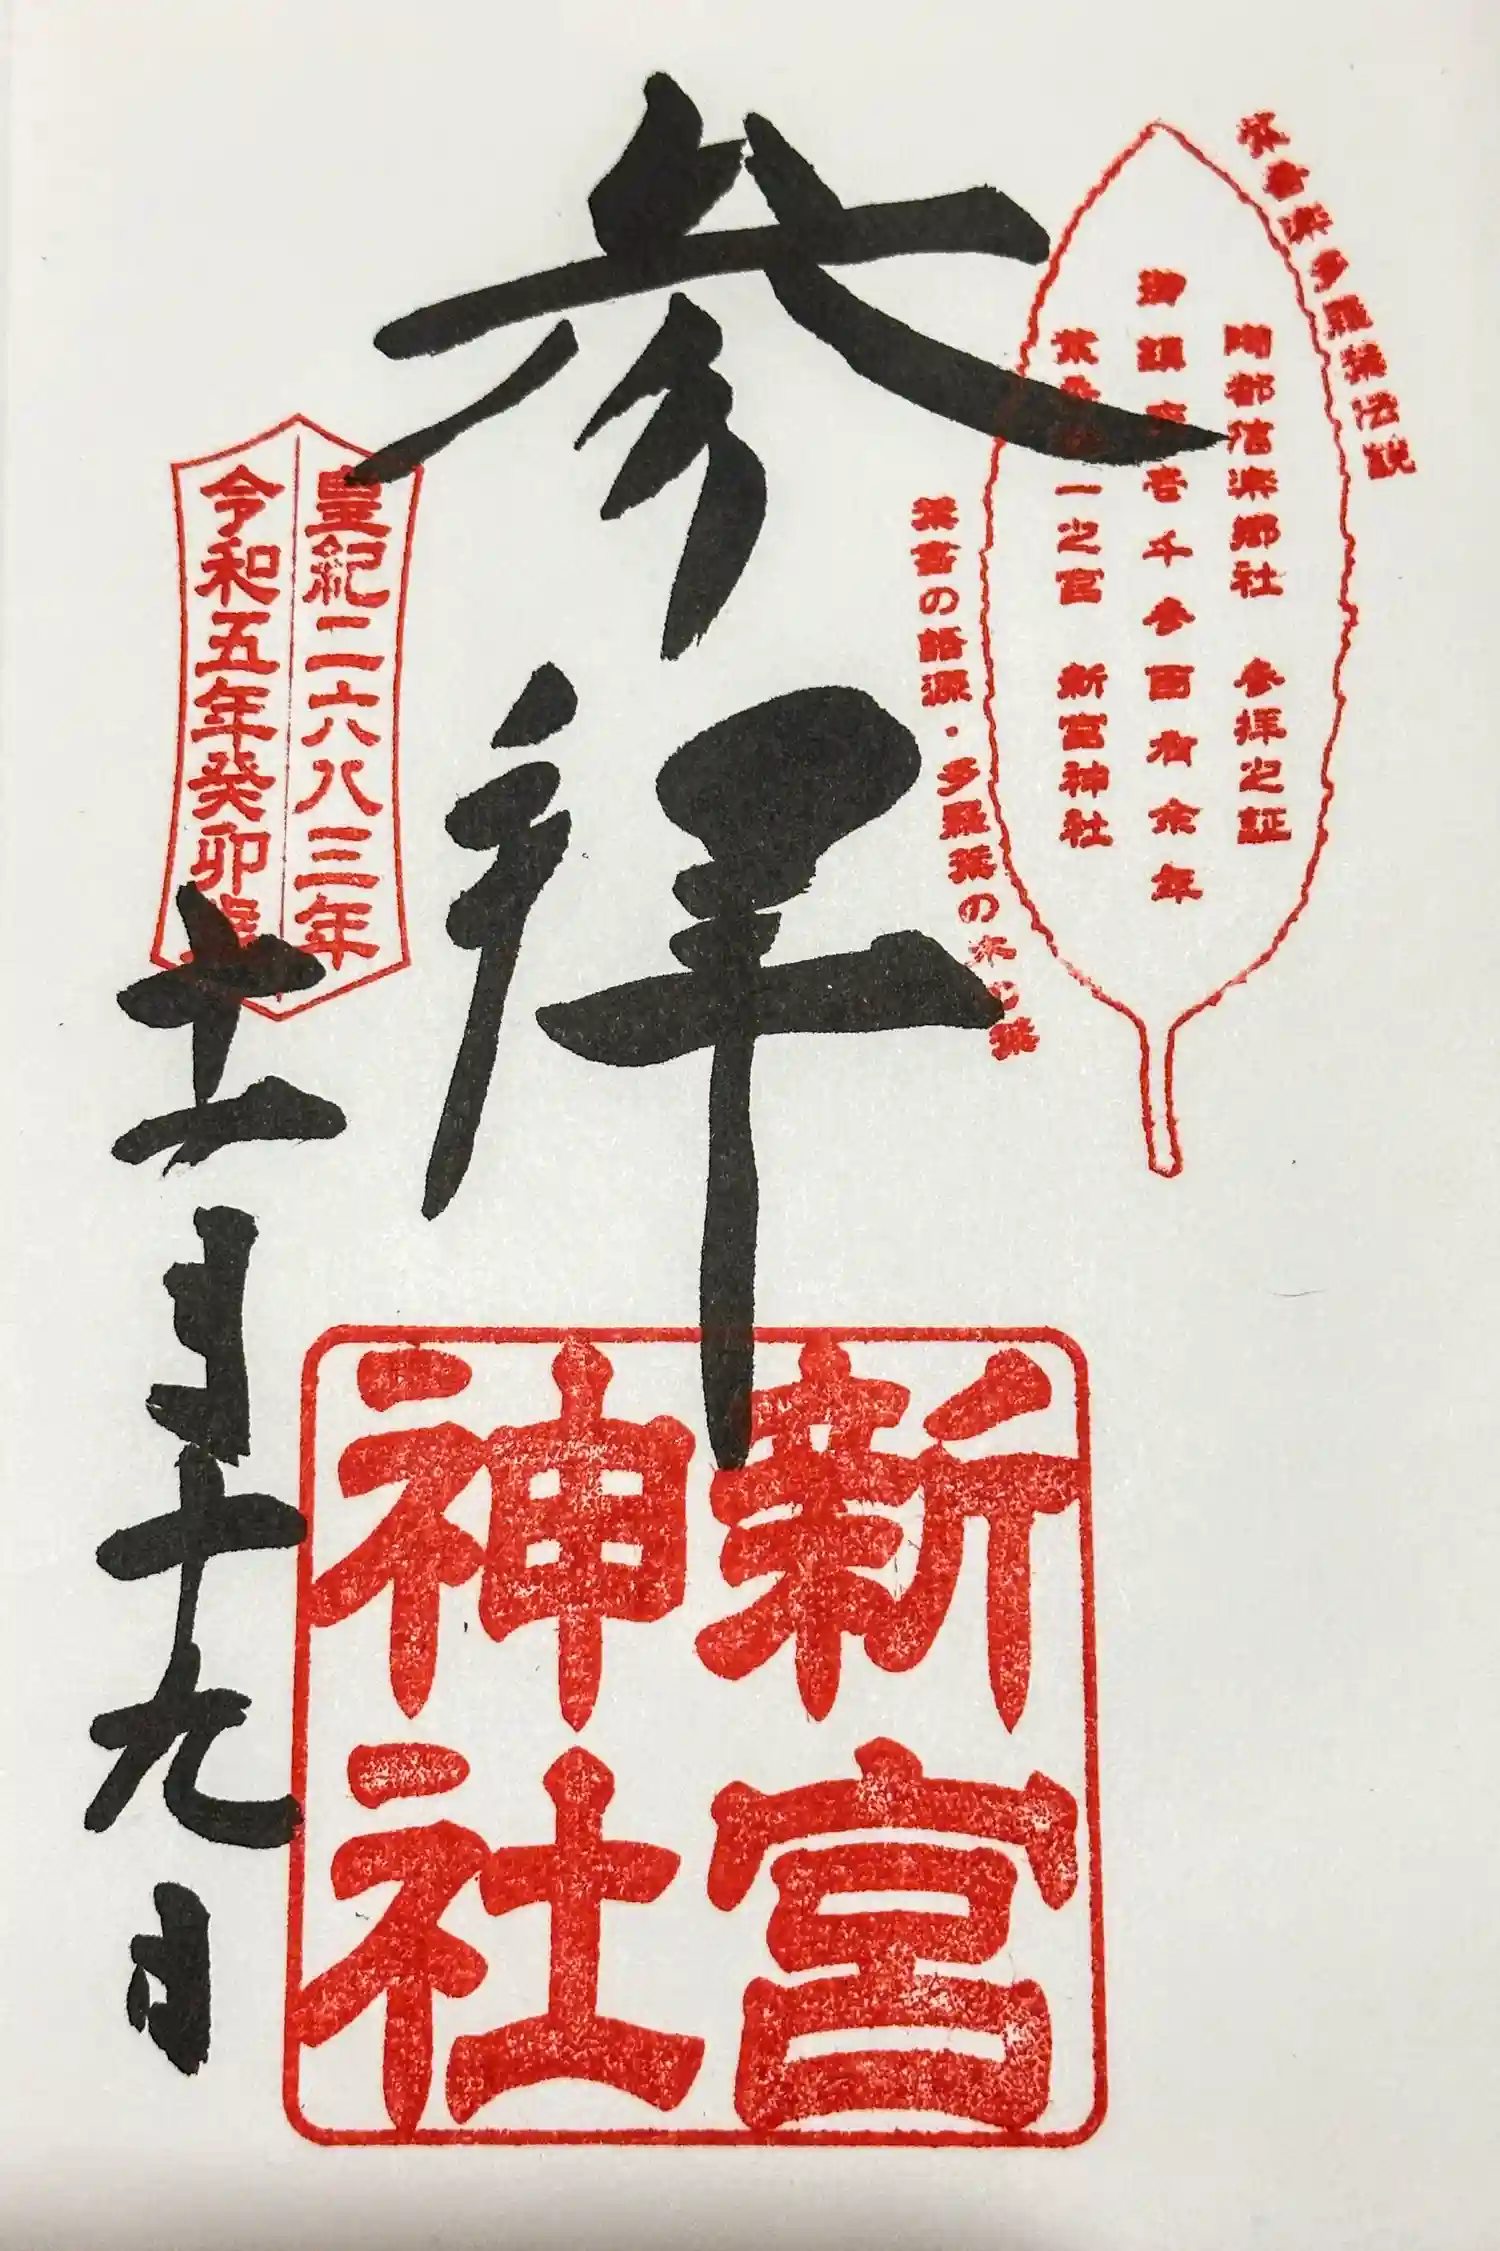 多羅葉伝説
陶都信楽郷社 参拝之証
御鎮座壱千参百有余年
紫香楽一之宮 新宮神社
葉書の語源・多羅葉の木の葉
参拝
新宮
神社
皇紀二六八三年
令和五年癸卯歳
十一月十九日